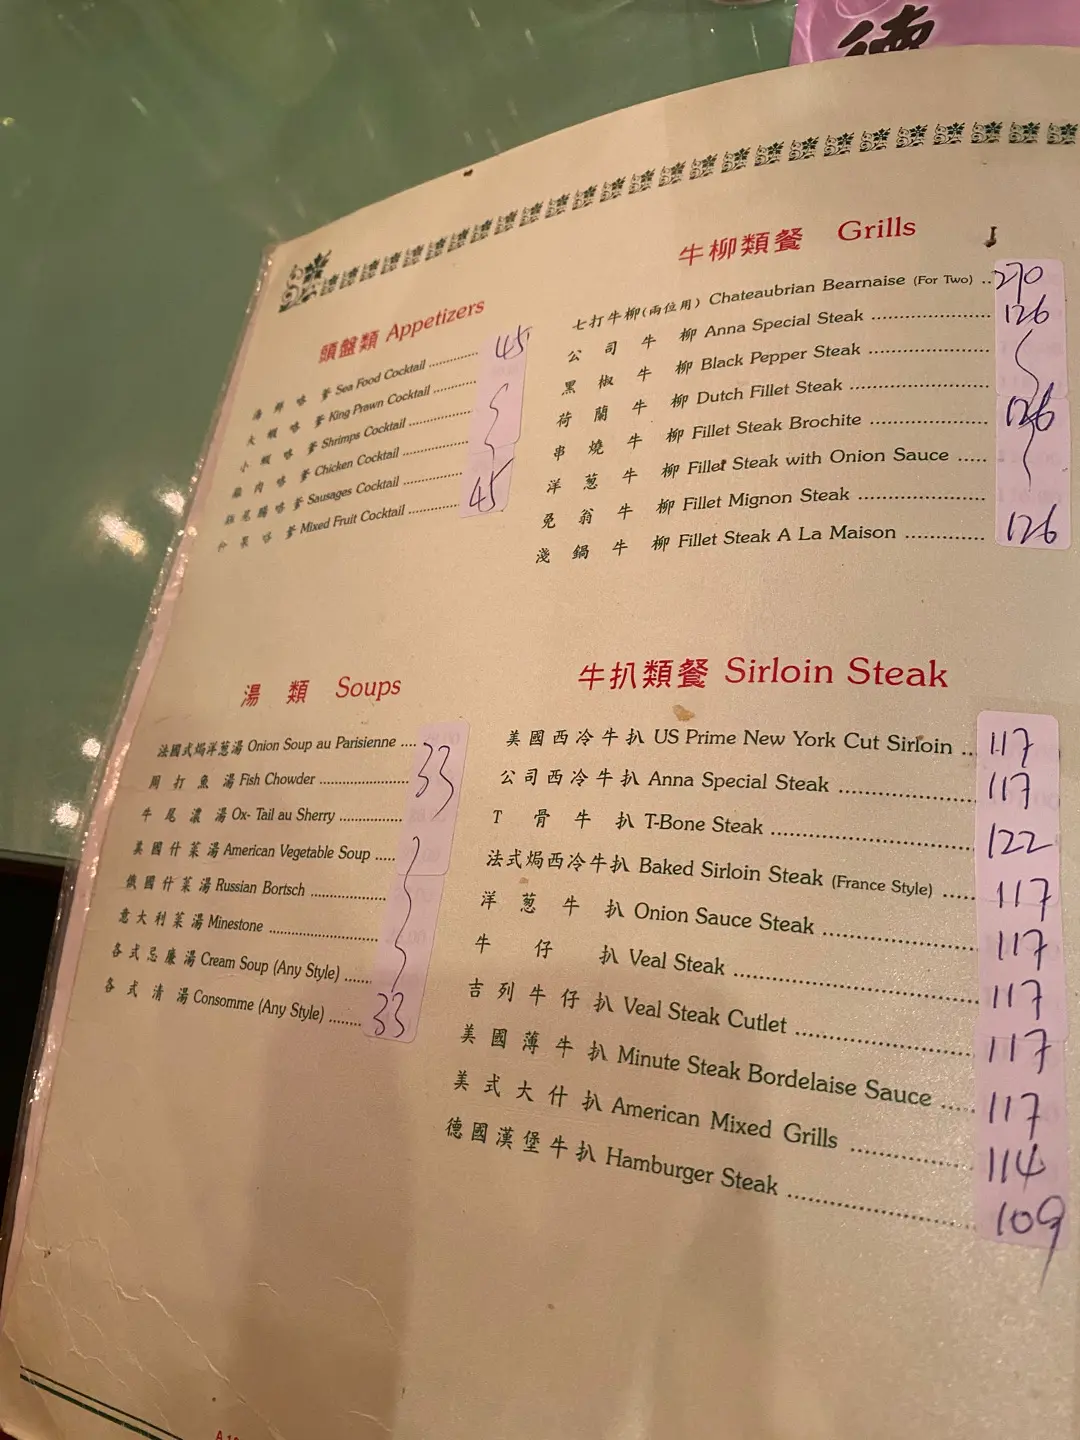 德
頭盤類 Appetizers
海鮮咯爹 Sea Food Cocktail .............. 45
大蝦咯爹 King Prawn Cocktail ............
小蝦咯爹 Shrimps Cocktail ................
雞肉咯爹 Chicken Cocktail ................
腸咯爹 Sausages Cocktail ..............
什菓咯爹 Mixed Fruit Cocktail ............ 45
湯類 Soups
法國式焗洋葱湯 Onion Soup au Parisienne .... 33
周打魚湯 Fish Chowder ......................
牛尾濃湯 Ox- Tail au Sherry ................
美國什菜湯 American Vegetable Soup .....
俄國什菜湯 Russian Bortsch ..................
意大利菜湯 Minestone ............................
各式忌廉湯 Cream Soup (Any Style) .......
各式清湯 Consomme (Any Style) ........ 33
牛柳類餐 Grills
七打牛柳(兩位用) Chateaubrian Bearnaise (For Two) .. 270
公司牛柳 Anna Special Steak ...................... 126
黑椒牛柳 Black Pepper Steak ......................
荷蘭牛柳 Dutch Fillet Steak ........................
串燒牛柳 Fillet Steak Brochite ...................... 126
洋葱牛柳 Fillet Steak with Onion Sauce .....
免翁牛柳 Fillet Mignon Steak ......................
淺鍋牛柳 Fillet Steak A La Maison ............... 126
牛扒類餐 Sirloin Steak
美國西冷牛扒 US Prime New York Cut Sirloin .. 117
公司西冷牛扒 Anna Special Steak ...................... 117
T骨牛扒 T-Bone Steak ................................ 122
法式焗西冷牛扒 Baked Sirloin Steak (France Style) ..... 117
洋葱牛扒 Onion Sauce Steak ........................ 117
牛仔扒 Veal Steak ........................................ 117
吉列牛仔扒 Veal Steak Cutlet ............................ 117
美國薄牛扒 Minute Steak Bordelaise Sauce ..... 117
美式大什扒 American Mixed Grills .................... 114
德國漢堡牛扒 Hamburger Steak ............................ 109